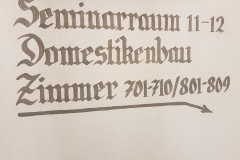 Seminarraum 11-12
Domestikenbau
Zimmer 701-710/801-809